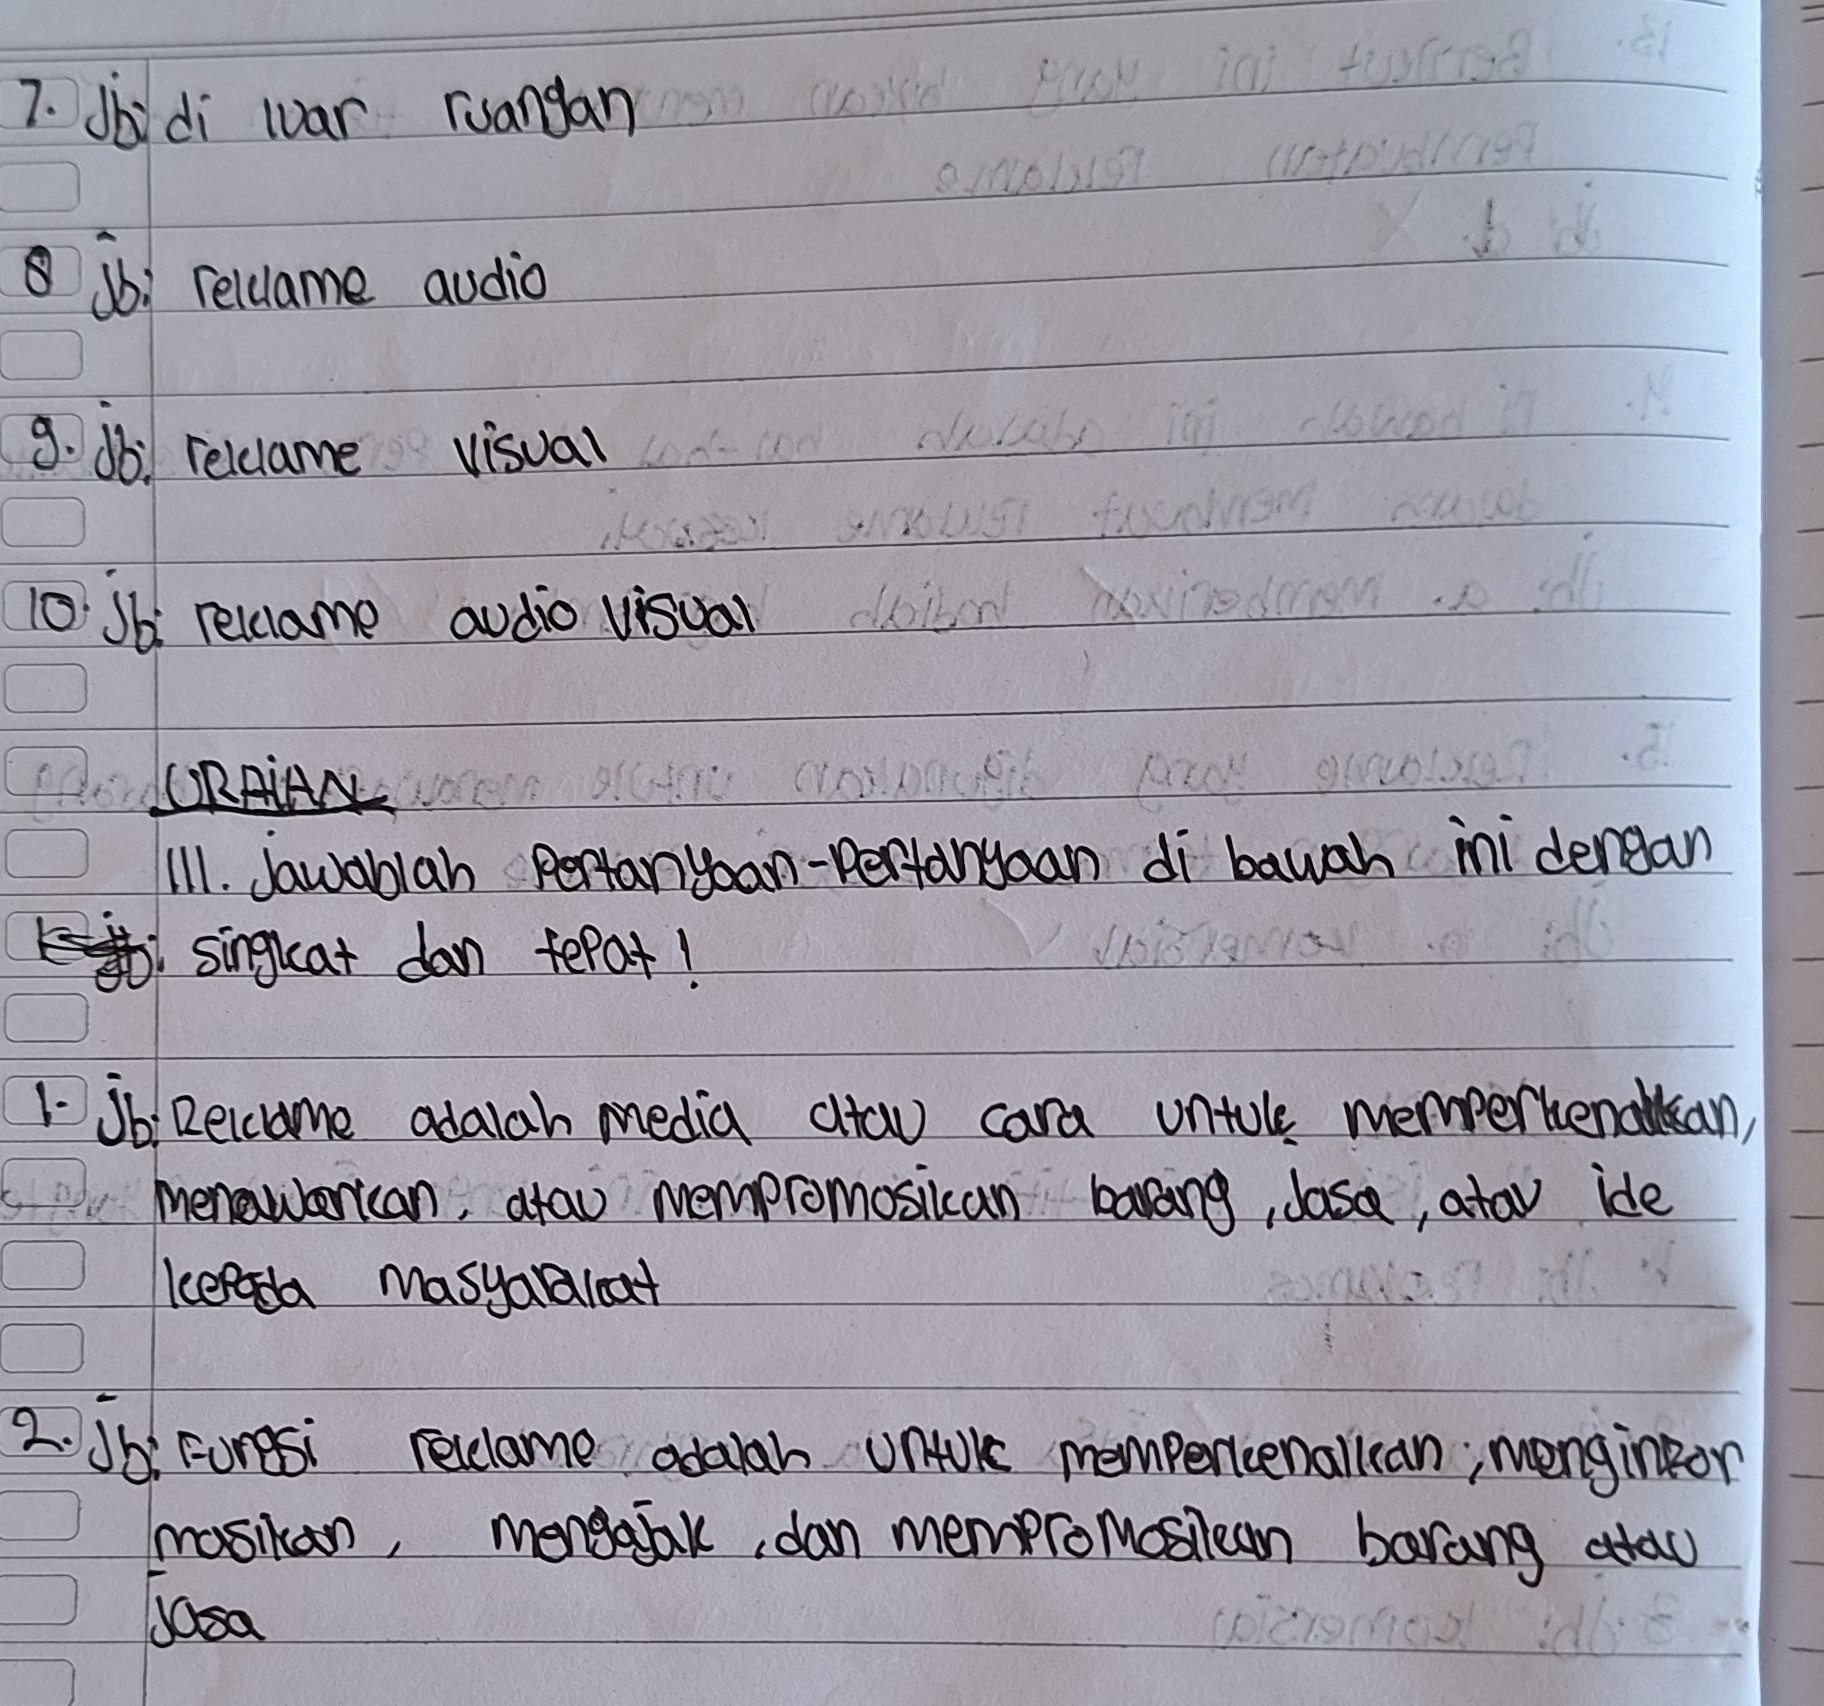 7. Jb: di luar ruangan
8 Jb: reklame audio
9. Jb: reklame visual
10. Jb: reklame audio visual
URAIAN
III. Jawablah Pertanyaan-Pertanyaan di bawah ini dengan
singkat dan tepat!
1. Jb: Reklame adalah media atau cara untuk memperkenalkan,
menawarkan, atau mempromosikan barang, Jasa, atau ide
kepada masyarakat
2. Jb: Fungsi reklame adalah untuk memperkenalkan, menginfor
masikan, mengajak, dan mempromosikan barang atau
jasa